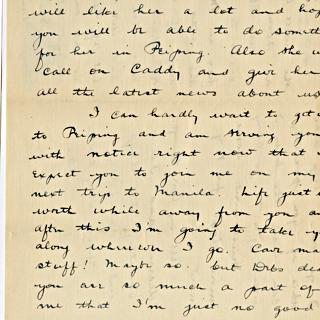 will like her a lot and hop
you will be able to do somet
for her in Peiping. Also she w
call on Caddy and give her
all the latest news about us
I can hardly wait to get
to Peiping and am serving you
with notice right now that
expect you to join me on my
next trip to Manila. Life just
worth while away from you a
after this I'm going to take y
along wherever I go. Cave ma
stuff! Maybe so. But Debs dea
you are so much a part of
me that I'm just no good